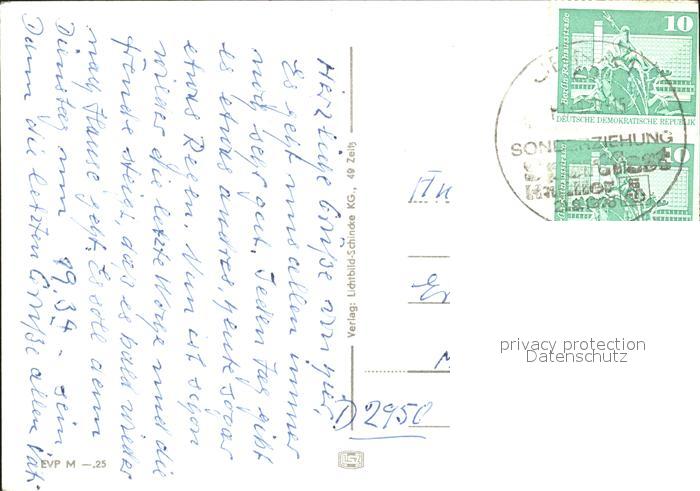 Herzliche Grüße von hier.
Es geht uns allen immer
noch sehr gut. Jeden Tag gibt
es etwas andres, heute sogar
etwas Regen. Nun ist schon
wieder die letzte Woche und die
Freude steht, das es bald wieder
nach Hause geht. Es soll denn
Dienstag um 19,34 - sein
Dann die letzten Grüße allen
EVP M —.25
Verlag: Lichtbild-Schincke KG., 49 Zeitz
D 2950
10
Berlin, Rathausstraße
DEUTSCHE DEMOKRATISCHE REPUBLIK
SONDERZIEHUNG
privacy protection
Datenschutz